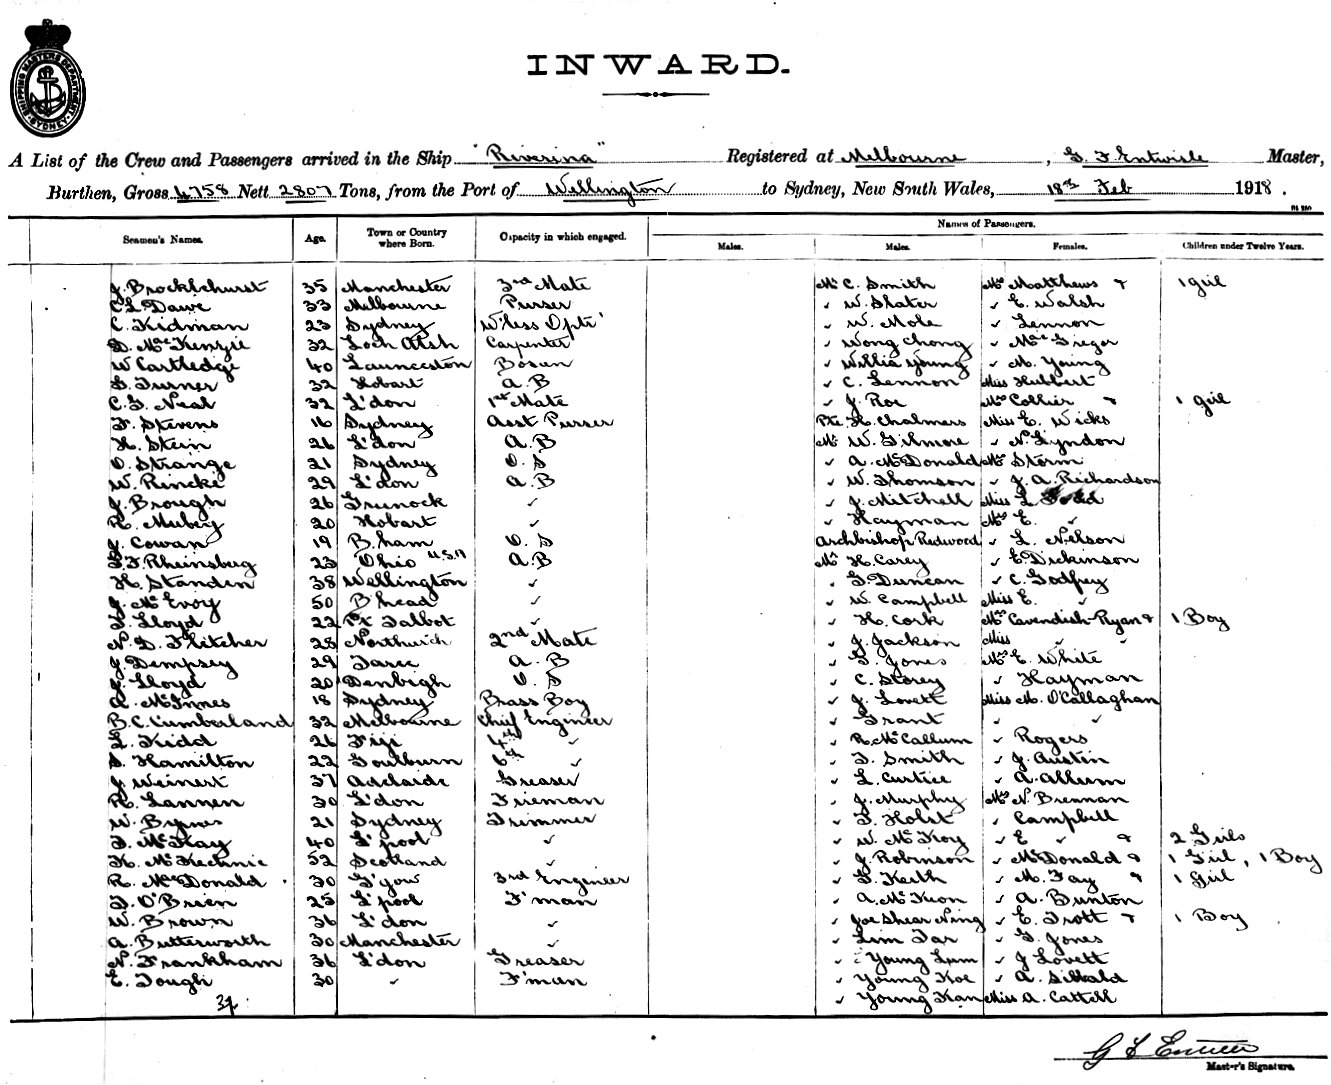 SHIPPING MASTERS DEPARTMENT SYDNEY
INWARD.
A List of the Crew and Passengers arrived in the Ship "Riverina" Registered at Melbourne, G. F. Entwisle Master,
Burthen, Gross 4758 Nett 2807 Tons, from the Port of Wellington to Sydney, New South Wales, 18th Feb 1918.
Names of Passengers.
Seamen's Names. Age. Town or Country where Born. Capacity in which engaged. Males. Males. Females. Children under Twelve Years.
J. Brocklehurst 35 Manchester 3rd Mate Mr C. Smith Mrs Matthews & 1 girl
C.L. Dawe 33 Melbourne Purser " W. Slater " E. Walsh
C. Kidman 23 Sydney W'less Optr' " W. Mole " Lennon
D. McKenzie 32 Loch Alsh Carpenter " Wong Chong " MacGregor
W Cartledge 40 Launceston Bosun " Willie Young " M. Young
G. Turner 32 Hobart A.B " C. Lennon Miss Hubbert
C.G. Neal 32 L'don 1st Mate " J. Roe Mrs Collier & 1 girl
F. Stevens 16 Sydney Asst Purser Pte H. Chalmers Miss E. Wicks
H. Stein 26 L'don A.B Mr W. Gilmore " N. Lyndon
O. Strange 21 Sydney O.S " A. McDonald Mrs Storm
W. Rincke 29 L'don A.B " W. Thomson " J. A. Richardson
J. Brough 26 Grunock " " J. Mitchell Miss L
R. Mubey 20 Hobart " " Hayman Mrs E. "
J. Cowan 19 B.ham O.S Archbishop Redwood " L. Nelson
F. Rheinsburg 23 Ohio U.S.A A.B Mr H. Carey " E. Dickinson
H. Standen 38 Wellington " " G. Duncan " C. Godfrey
J. McEvoy 50 B'head " " W. Campbell Miss E. "
F. Lloyd 22 Pt Talbot " " H. Cork Mrs Cavendish-Ryan & 1 Boy
N. D. Flitcher 28 Northwich 2nd Mate " J. Jackson Miss " "
J. Dempsey 29 Taree A.B " G. Jones Mrs E. White
J. Lloyd 20 Denbigh O.S " C. Storey " Hayman
A. McInnes 18 Sydney Brass Boy " J. Lovett Miss M. O'Callaghan
B.C. Cumberland 32 Melbourne Chief Engineer " Grant " "
L. Kidd 26 Fiji 4th " " R. McCallum " Rogers
S. Hamilton 22 Goulburn 6th " " F. Smith " J. Austin
J Weinert 37 Adelaide Greaser " L. Curtice " A. Allum
R. Lannen 30 L'don Frieman " J. Murphy Mrs N. Brennan
W. Byrnes 21 Sydney Trimmer " F. Holst " Campbell
F. McKay 40 L'pool " " W. McKoy " E " & 2 Girls
K. McKechnie 52 Scotland " " J. Robinson " McDonald & 1 Girl, 1 Boy
R. McDonald 30 G'gow 3rd Engineer " G. Keith " M. Fay & 1 Girl
J. O'Brien 25 L'pool F'man " A. McKeon " A. Bunton
W. Brown 36 L'don " " Joe Shear Ning " E. Trott & 1 Boy
A. Butterworth 30 Manchester " " Lim Tar " G. Jones
N. Frankham 36 L'don Greaser " Young Lum " J Lovett
E. Tough 30 " F'man " Young Koe " A. Sibbald
" Young Kan Miss A. Cattell
Master's Signature.